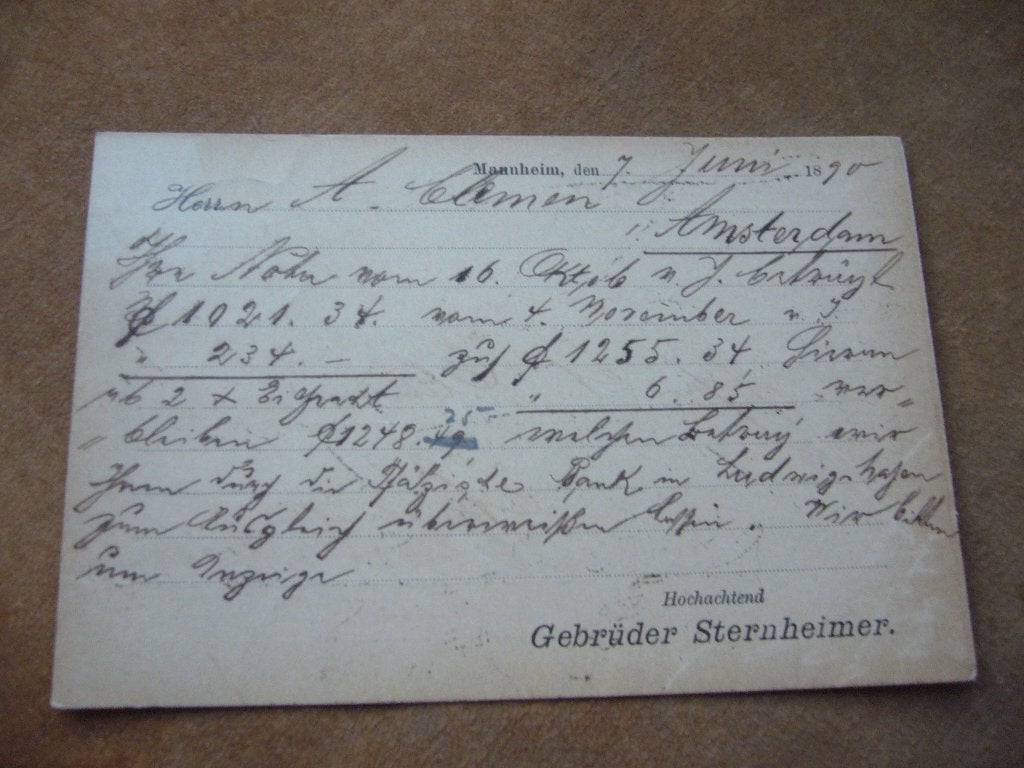 Mannheim, den 7. Juni 1890
Herrn A. Clemen
Amsterdam
Ihre Nota vom 16. Oktob v. J. beträgt
f 1021. 34. vom 4. November v. J
" 234. — zus f 1255. 34 hievon
ab 2 % " 6. 85 ver„
„bleiben f 1248. 49 25 welchen Betrag wir
Ihnen durch die Pfälzische Bank in Ludwigshafen
zum Ausgleich überweißen lassen. Wir bitten
um Anzeige
Hochachtend
Gebrüder Sternheimer.